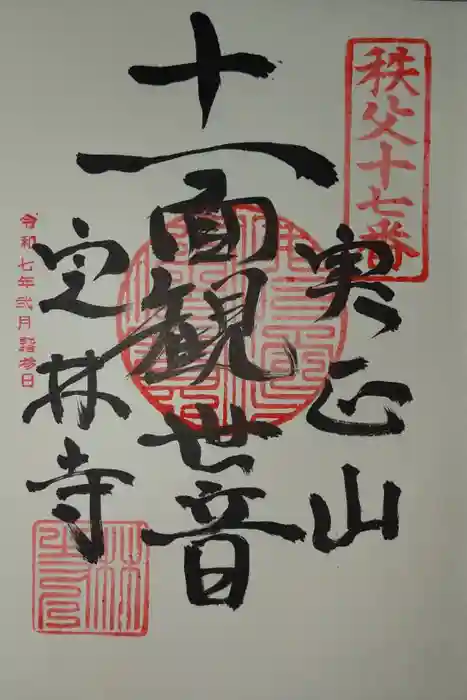 秩父十七番
実正山
十一面観世音
定林寺
令和七年弐月詣拝日